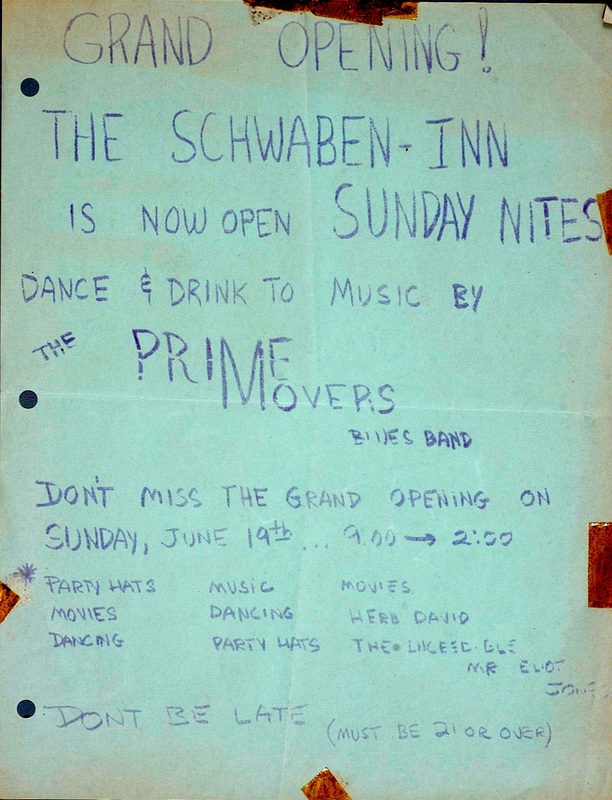 GRAND OPENING!
THE SCHWABEN-INN
IS NOW OPEN SUNDAY NITES
DANCE & DRINK TO MUSIC BY
THE PRIME MOVERS
BLUES BAND
DON'T MISS THE GRAND OPENING ON
SUNDAY, JUNE 19th... 9:00 → 2:00
* PARTY HATS MUSIC MOVIES
MOVIES DANCING HERB DAVID
DANCING PARTY HATS THE INCREDIBLE
MR ELIOT
JONES
DONT BE LATE (MUST BE 21 OR OVER)